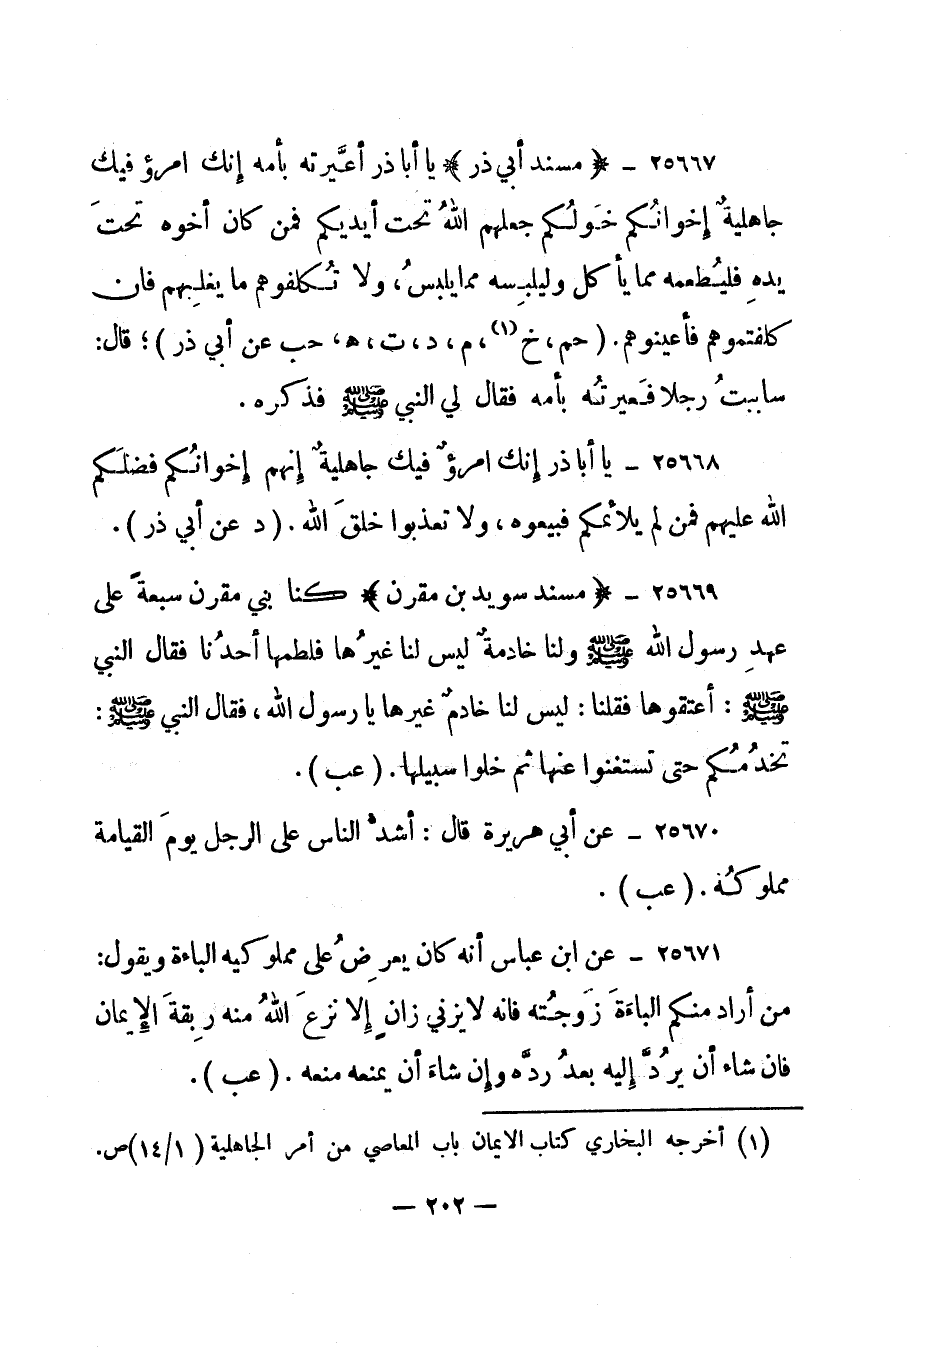 ٢٥٦٦٧ ـ ﴿ مسند أبي ذر ﴾ يا أبا ذر أعَّيرته بأمه إنك امرؤ فيك
جاهليةٌ إخوانُكم خَولُكم جعلهم اللهُ تحت أيديكم فمن كان أخوه تحتَ
يدهِ فليُطعمه مما يأكل وليلبِسه مما يلبسُ، ولا تُكلفوهم ما يغلبهم فان
كلفتموهم فأعينوهم. ( حم، خ(١)، م، د، ت، ه، حب عن أبي ذر )؛ قال:
ساببتُ رجلا فَعيرتُه بأمه فقال لي النبي ﷺ فذكره.
٢٥٦٦٨ ـ يا أبا ذر إنك امرؤٌ فيك جاهليةٌ إنهم إخوانُكم فضلَكم
الله عليهم فمن لم يلائمكم فبيعوه، ولا تعذبوا خلقَ الله. ( د عن أبي ذر ).
٢٥٦٦٩ ـ ﴿ مسند سويد بن مقرن ﴾ كنا بني مقرن سبعةً على
عهدِ رسول الله ﷺ ولنا خادمةٌ ليس لنا غيرُها فلطمها أحدُنا فقال النبي
ﷺ : أعتقوها فقلنا: ليس لنا خادمٌ غيرها يا رسول الله، فقال النبي ﷺ :
تخدُمُكم حتى تستغنوا عنها ثم خلوا سبيلها. ( عب ).
٢٥٦٧٠ ـ عن أبي هريرة قال : أشدُّ الناس على الرجل يومَ القيامة
مملوكُه. ( عب ) .
٢٥٦٧١ ـ عن ابن عباس أنه كان يعرِضُ على مملوكيه الباءة ويقول:
من أراد منكم الباءَةَ زَوجتُه فانه لا يزني زانٍ إلا نزعَ اللهُ منه رِبقةَ الإِيمان
فان شاء أن يرُدَّ إليه بعدُ ردَّه وإن شاءَ أن يمنعه منعه . ( عب ).
(١) أخرجه البخاري كتاب الايمان باب المعاصي من أمر الجاهلية ( ١٤/١)ص.
— ٢٠٢ —